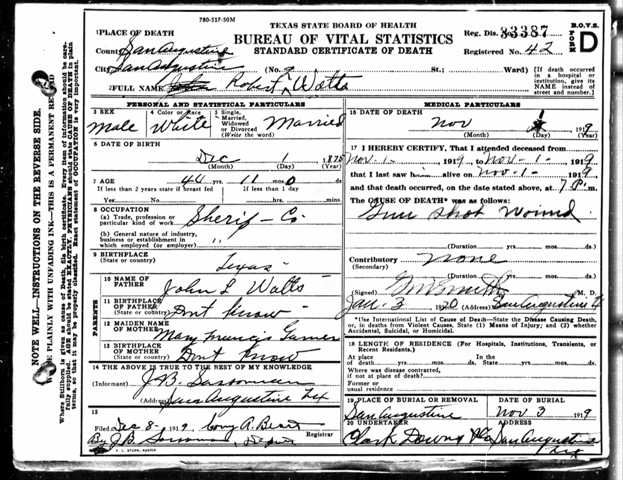 780-517-50M
TEXAS STATE BOARD OF HEALTH
BUREAU OF VITAL STATISTICS
STANDARD CERTIFICATE OF DEATH
Reg. Dis. 33387
Registered No. 42
B.O.V.S.
FORM D
1 PLACE OF DEATH
County San Augustine
City San Augustine (No. St.; Ward)
[If death occurred in a hospital or institution, give its NAME instead of street and number.]
2 FULL NAME Robert Watts
PERSONAL AND STATISTICAL PARTICULARS
3 SEX Male
4 Color or Race White
5 Single, Married, Widowed or Divorced (Write the word) Married
6 DATE OF BIRTH
Dec 1 1875
(Month) (Day)
7 AGE 44 yrs. 11 mos. 0 ds.
If less than 2 years state if breast fed
If less than 1 day
Yes No hrs. mins
8 OCCUPATION
(a) Trade, profession or particular kind of work Sherif - Co.
(b) General nature of industry, business or establishment in which employed (or employer) "
9 BIRTHPLACE (State or country) Texas
PARENTS
10 NAME OF FATHER John L Watts
11 BIRTHPLACE OF FATHER (State or country) Dont Know
12 MAIDEN NAME OF MOTHER Mary Francis Garner
13 BIRTHPLACE OF MOTHER (State or country) Dont Know
14 THE ABOVE IS TRUE TO THE BEST OF MY KNOWLEDGE
(Informant) J.B.
(Address) San Augustine Tex
15
Filed Dec 8- 1919,
By J.B.
Registrar
MEDICAL PARTICULARS
16 DATE OF DEATH
Nov 1 1919
(Month) (Day)
17 I HEREBY CERTIFY, That I attended deceased from
Nov-1- 1919, to Nov-1- 1919
that I last saw h alive on Nov-1- 1919
and that death occurred, on the date stated above, at 7 P.m.
The CAUSE OF DEATH* was as follows:
Gun shot Wound
(Duration yrs. mos. ds.
Contributory None
(Secondary)
(Duration yrs. mos. ds.
(Signed) Smith M. D.
Jan. 3 1920 (Address) San Augustine Tx
*Use International List of Cause of Death—State the Disease Causing Death, or, in deaths from Violent Causes, State (1) Means of Injury; and (2) whether Accidental, Suicidal, or Homicidal.
18 LENGTH OF RESIDENCE (For Hospitals, Institutions, Transients, or Recent Residents.)
At place of death yrs. mos. ds. In the State yrs. mos. ds.
Where was disease contracted, if not at place of death?
Former or usual residence
19 PLACE OF BURIAL OR REMOVAL San Augustine
DATE OF BURIAL Nov 3 1919
20 UNDERTAKER Clark Downs
ADDRESS San Augustine Tex
NOTE WELL—INSTRUCTIONS ON THE REVERSE SIDE.
PLAINLY WITH UNFADING INK—THIS IS A PERMANENT RECORD